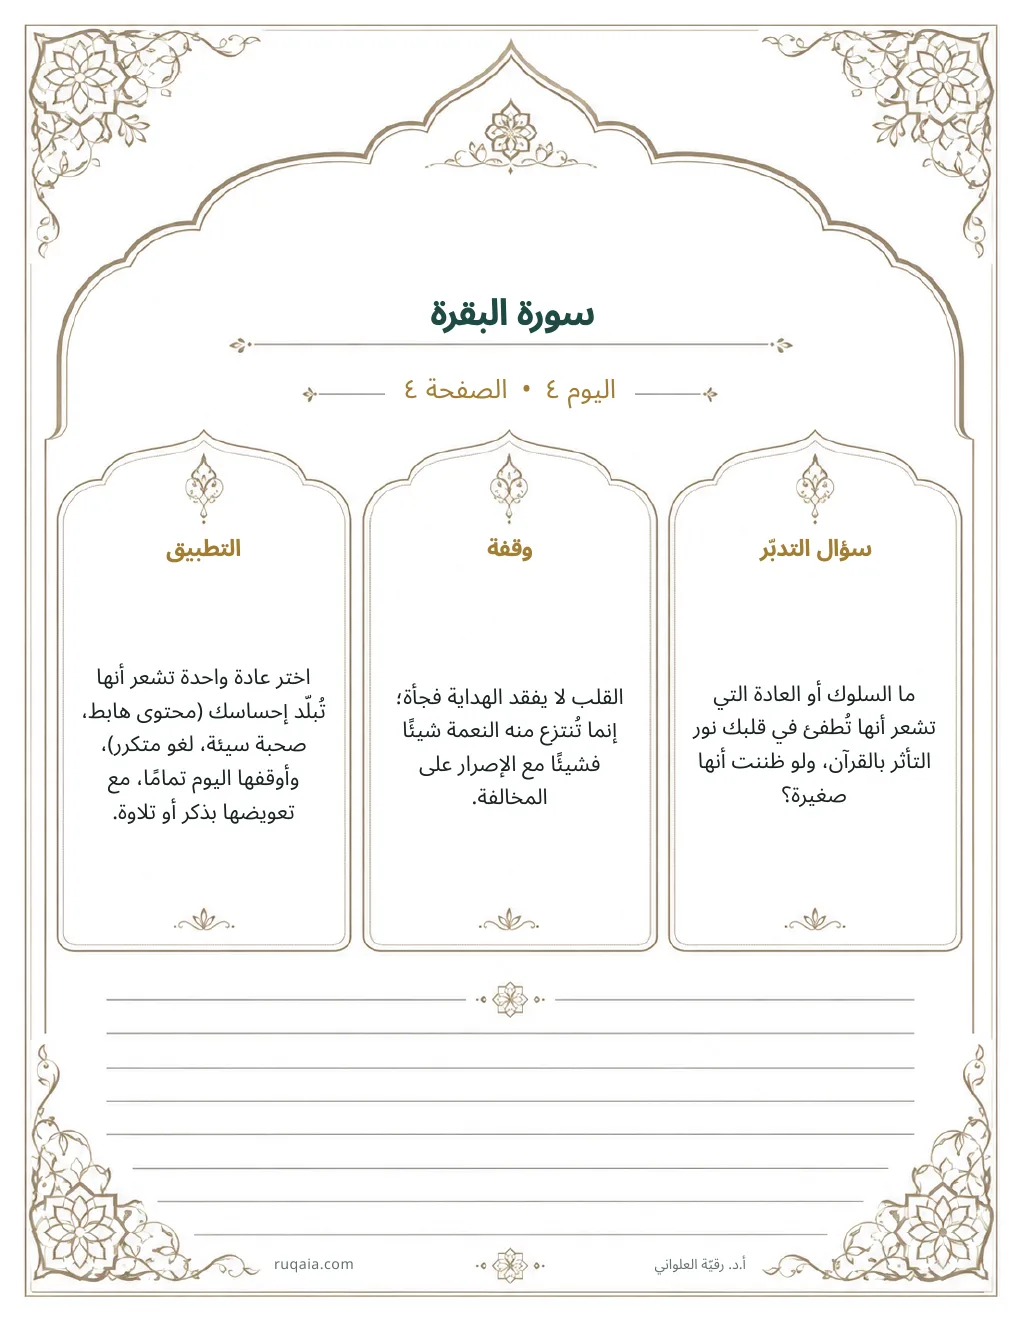 سورة البقرة
اليوم ٤ • الصفحة ٤
سؤال التدبّر
ما السلوك أو العادة التي
تشعر أنها تُطفئ في قلبك نور
التأثر بالقرآن، ولو ظننت أنها
صغيرة؟
وقفة
القلب لا يفقد الهداية فجأة؛
إنما تُنتزع منه النعمة شيئًا
فشيئًا مع الإصرار على
المخالفة.
التطبيق
اختر عادة واحدة تشعر أنها
تُبلّد إحساسك (محتوى هابط،
صحبة سيئة، لغو متكرر)،
وأوقفها اليوم تمامًا، مع
تعويضها بذكر أو تلاوة.
أ.د. رقيّة العلواني
ruqaia.com